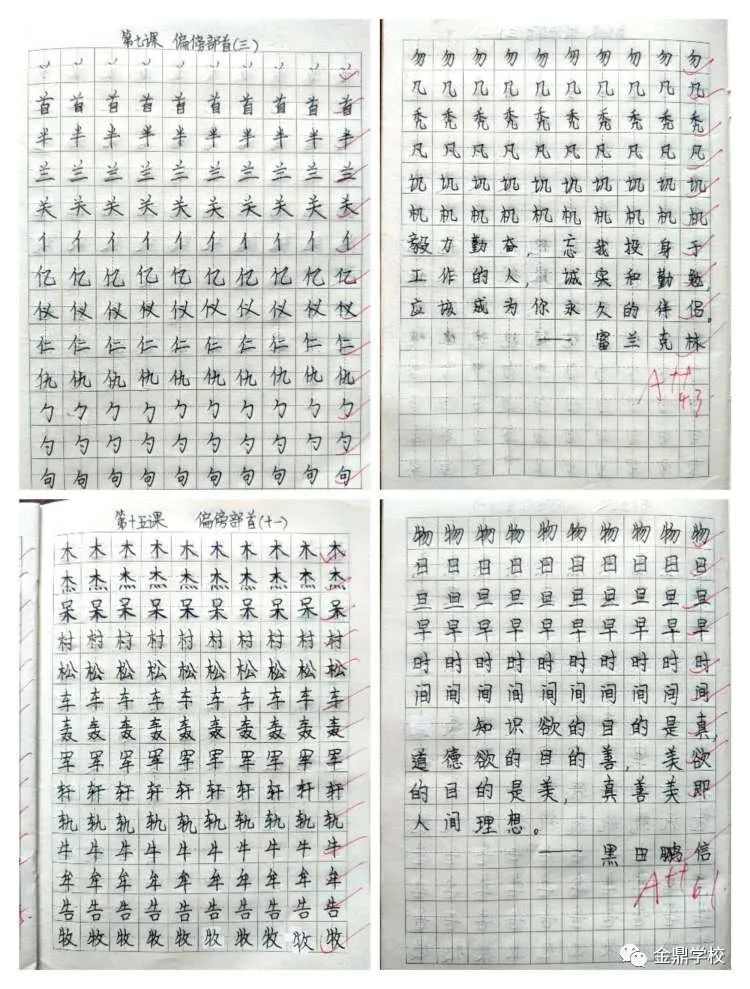 第七课 偏傍部首(三)
丷 丷 丷 丷 丷 丷 丷 丷 丷 丷
首 首 首 首 首 首 首 首 首 首
半 半 半 半 半 半 半 半 半 半
兰 兰 兰 兰 兰 兰 兰 兰 兰 兰
关 关 关 关 关 关 关 关 关 关
亻 亻 亻 亻 亻 亻 亻 亻 亻 亻
亿 亿 亿 亿 亿 亿 亿 亿 亿 亿
仪 仪 仪 仪 仪 仪 仪 仪 仪 仪
仁 仁 仁 仁 仁 仁 仁 仁 仁 仁
仇 仇 仇 仇 仇 仇 仇 仇 仇 仇
勹 勹 勹 勹 勹 勹 勹 勹 勹 勹
勺 勺 勺 勺 勺 勺 勺 勺 勺 勺
句 句 句 句 句 句 句 句 句 句
勿 勿 勿 勿 勿 勿 勿 勿 勿 勿
几 几 几 几 几 几 几 几 几 几
秃 秃 秃 秃 秃 秃 秃 秃 秃 秃
凡 凡 凡 凡 凡 凡 凡 凡 凡 凡
坑 坑 坑 坑 坑 坑 坑 坑 坑 坑
机 机 机 机 机 机 机 机 机 机
毅力勤奋，忘我投身于
工作的人，诚实和勤勉
应该成为你永久的伴侣。
——富兰克林
A++
4.3
第十五课 偏傍部首(十一)
木 木 木 木 木 木 木 木 木 木
杰 杰 杰 杰 杰 杰 杰 杰 杰 杰
呆 呆 呆 呆 呆 呆 呆 呆 呆 呆
村 村 村 村 村 村 村 村 村 村
松 松 松 松 松 松 松 松 松 松
车 车 车 车 车 车 车 车 车 车
轰 轰 轰 轰 轰 轰 轰 轰 轰 轰
军 军 军 军 军 军 军 军 军 军
轩 轩 轩 轩 轩 轩 轩 轩 轩 轩
轨 轨 轨 轨 轨 轨 轨 轨 轨 轨
牛 牛 牛 牛 牛 牛 牛 牛 牛 牛
牟 牟 牟 牟 牟 牟 牟 牟 牟 牟
告 告 告 告 告 告 告 告 告 告
牧 牧 牧 牧 牧 牧 牧 牧 牧 牧
物 物 物 物 物 物 物 物 物 物
日 日 日 日 日 日 日 日 日 日
旦 旦 旦 旦 旦 旦 旦 旦 旦 旦
早 早 早 早 早 早 早 早 早 早
时 时 时 时 时 时 时 时 时 时
间 间 间 间 间 间 间 间 间 间
知识欲的目的是真，
道德欲的目的善，美欲
的目的是美，真善美即
人间理想。
——黑田鹏信
A++
6.1
金鼎学校